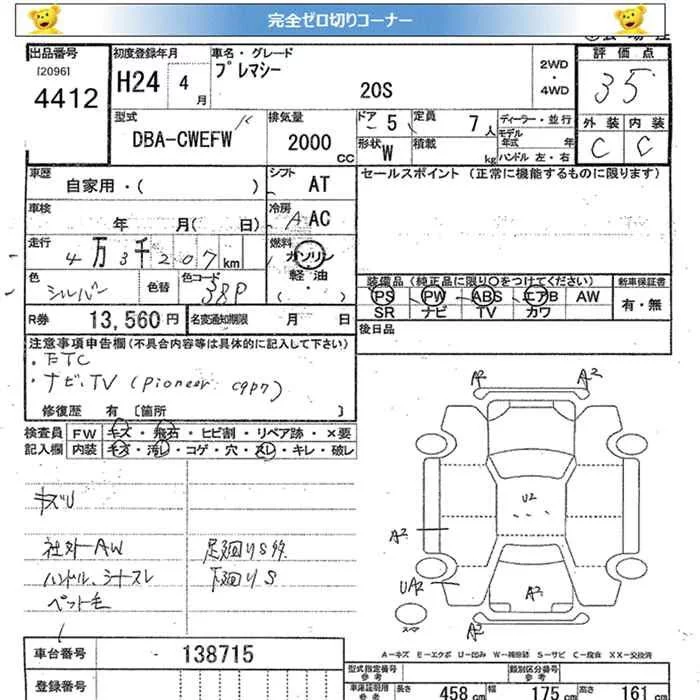 完全ゼロ切りコーナー
出品番号
[2096]
4412
初度登録年月
H24 4 月
車名・グレード
プレマシー
20S
2WD
・
4WD
評価点
35
外装 内装
C C
型式
DBA-CWEFW
排気量
2000 CC
ドア 5
形状 W
定員 7 人
積載 kg
ディーラー・並行
モデル
年式 年
ハンドル 左・右
車歴
自家用・( )
シフト AT
セールスポイント (正常に機能するものに限ります)
車検
年 月( 日)
冷房 A AC
走行
4 万 3 千 207 km
燃料
ガソリン
軽・油
( )
色
シルバー
色替
色コード
38P
装備品 (純正品に限り○をつけてください)
新車保証書
PS PW ABS エアB AW
SR ナビ TV カワ
有・無
R券 13,560 円
名変通知期限 月 日
後日品
注意事項申告欄 (不具合内容等は具体的に記入して下さい)
・ETC
・ナビ、TV (Pioneer
修復歴 有 〔箇所 〕
検査員
記入欄
FW キズ・飛石・ヒビ割・リペア跡・×要
内装 キズ・汚レ・コゲ・穴・スレ・キレ・破レ
キズU
社外AW
ハンドル、シートスレ
ペット毛
足廻りS
下廻りS
A2 A2
U2
A2
UA2
A2
A2
スペア
A－キズ E－エクボ U－凹み W－補修跡 S－サビ C－腐食 XX－交換済
車台番号 138715
登録番号
型式指定番号
参考
類別区分番号
参考
車庫証明用
参考
長さ 458 cm 幅 175 cm 高さ 161 cm